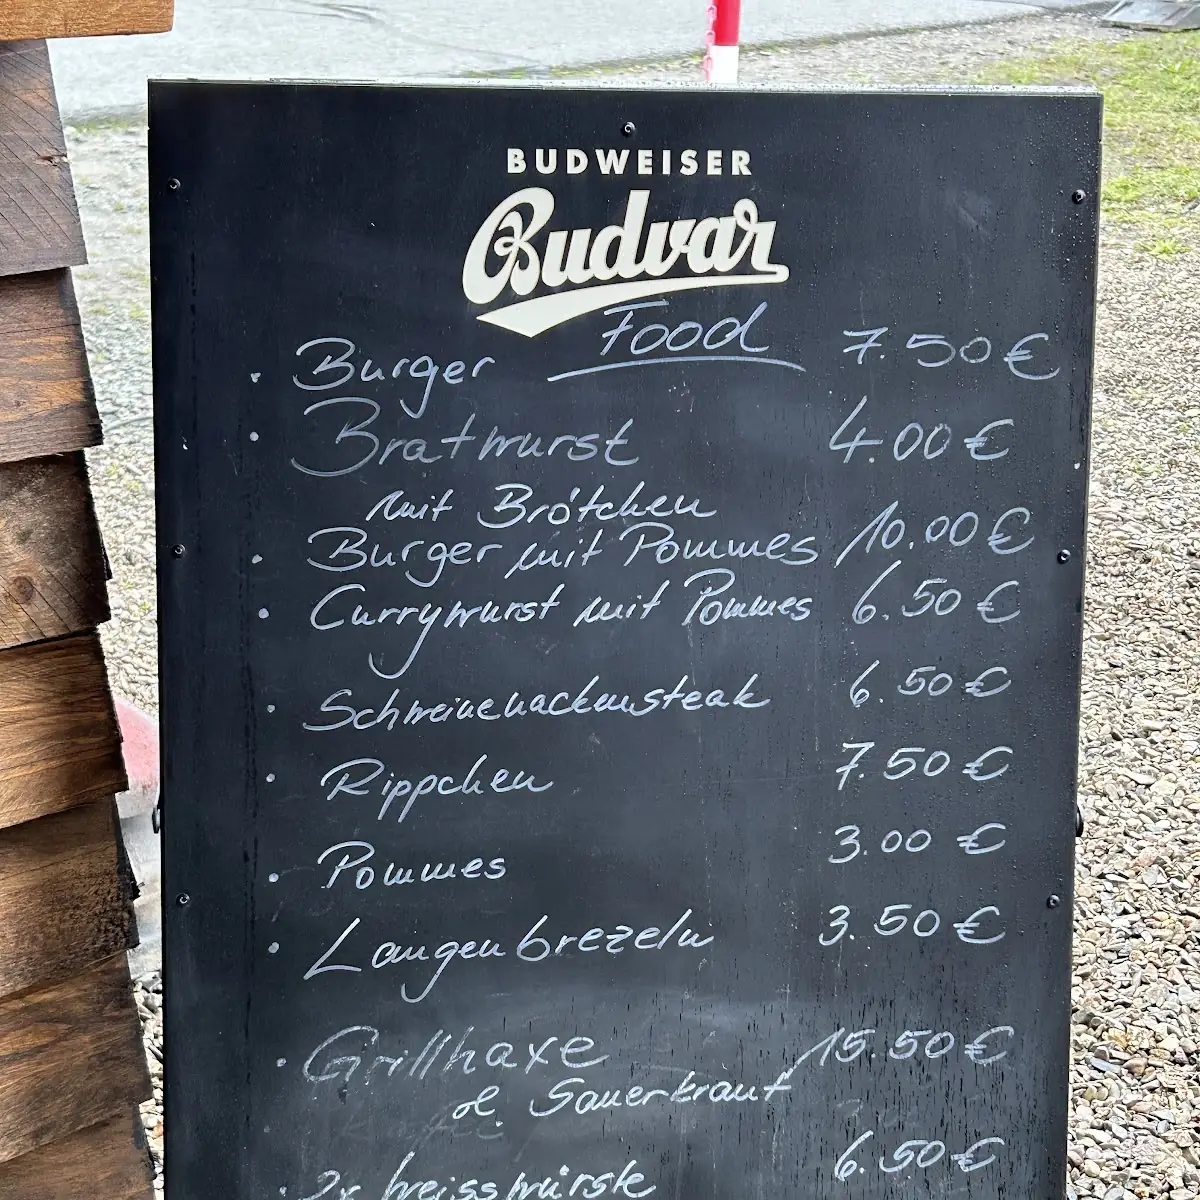 BUDWEISER
Budvar
Food
• Burger 7.50 €
• Bratwurst 4.00 €
mit Brötchen
• Burger mit Pommes 10.00 €
• Currywurst mit Pommes 6.50 €
• Schweinenackensteak 6.50 €
• Rippchen 7.50 €
• Pommes 3.00 €
• Laugenbrezeln 3.50 €
• Grillhaxe 15.50 €
Sauerkraut
• 2x Weisswürste 6.50 €